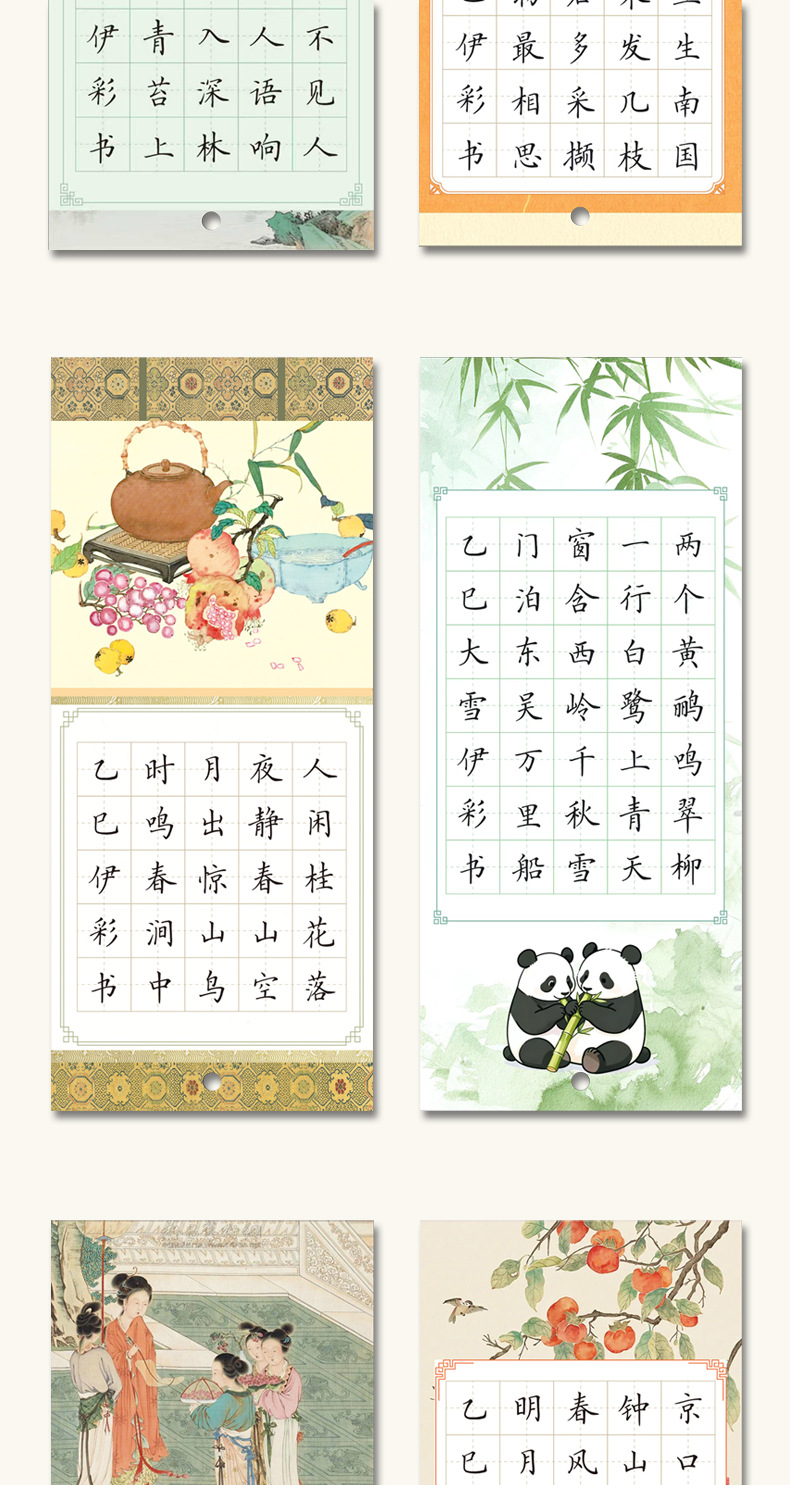 不见人
人语响
入深林
青苔上
伊彩书
生南国
发几枝
多采撷
最相思
伊彩书
人闲桂花落
夜静春山空
月出惊山鸟
时鸣春涧中
乙巳伊彩书
两个黄鹂鸣翠柳
一行白鹭上青天
窗含西岭千秋雪
门泊东吴万里船
乙巳大雪伊彩书
京口
钟山
春风
明月
乙巳